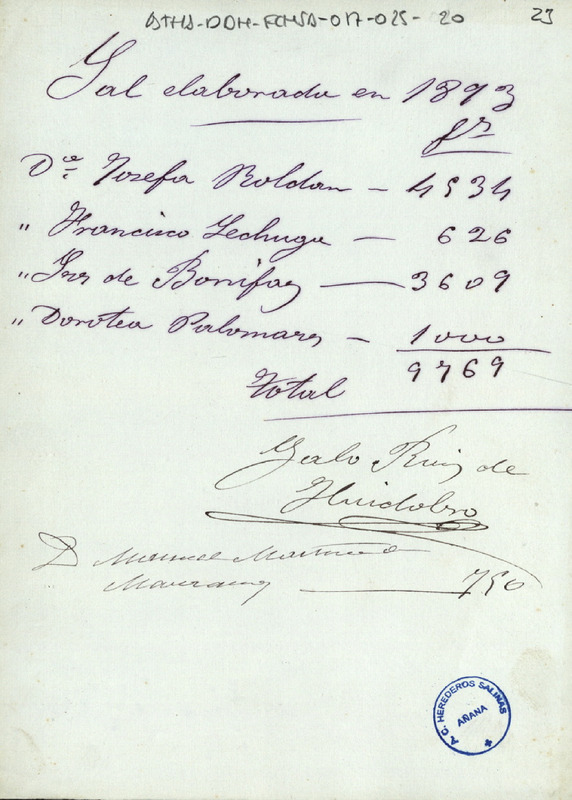 ATHA-DDH-FCHSA-017-025-20
23
Sal elaborada en 1893
fs
Dª Josefa Roldan - 4534
" Francisco Lechuga — 626
" de Bonifaz — 3609
" Dorotea Palomares - 1000
Total 9769
Galo Ruiz de
Huidobro
D Manuel Martinez
750
A. C. HEREDEROS SALINAS
AÑANA